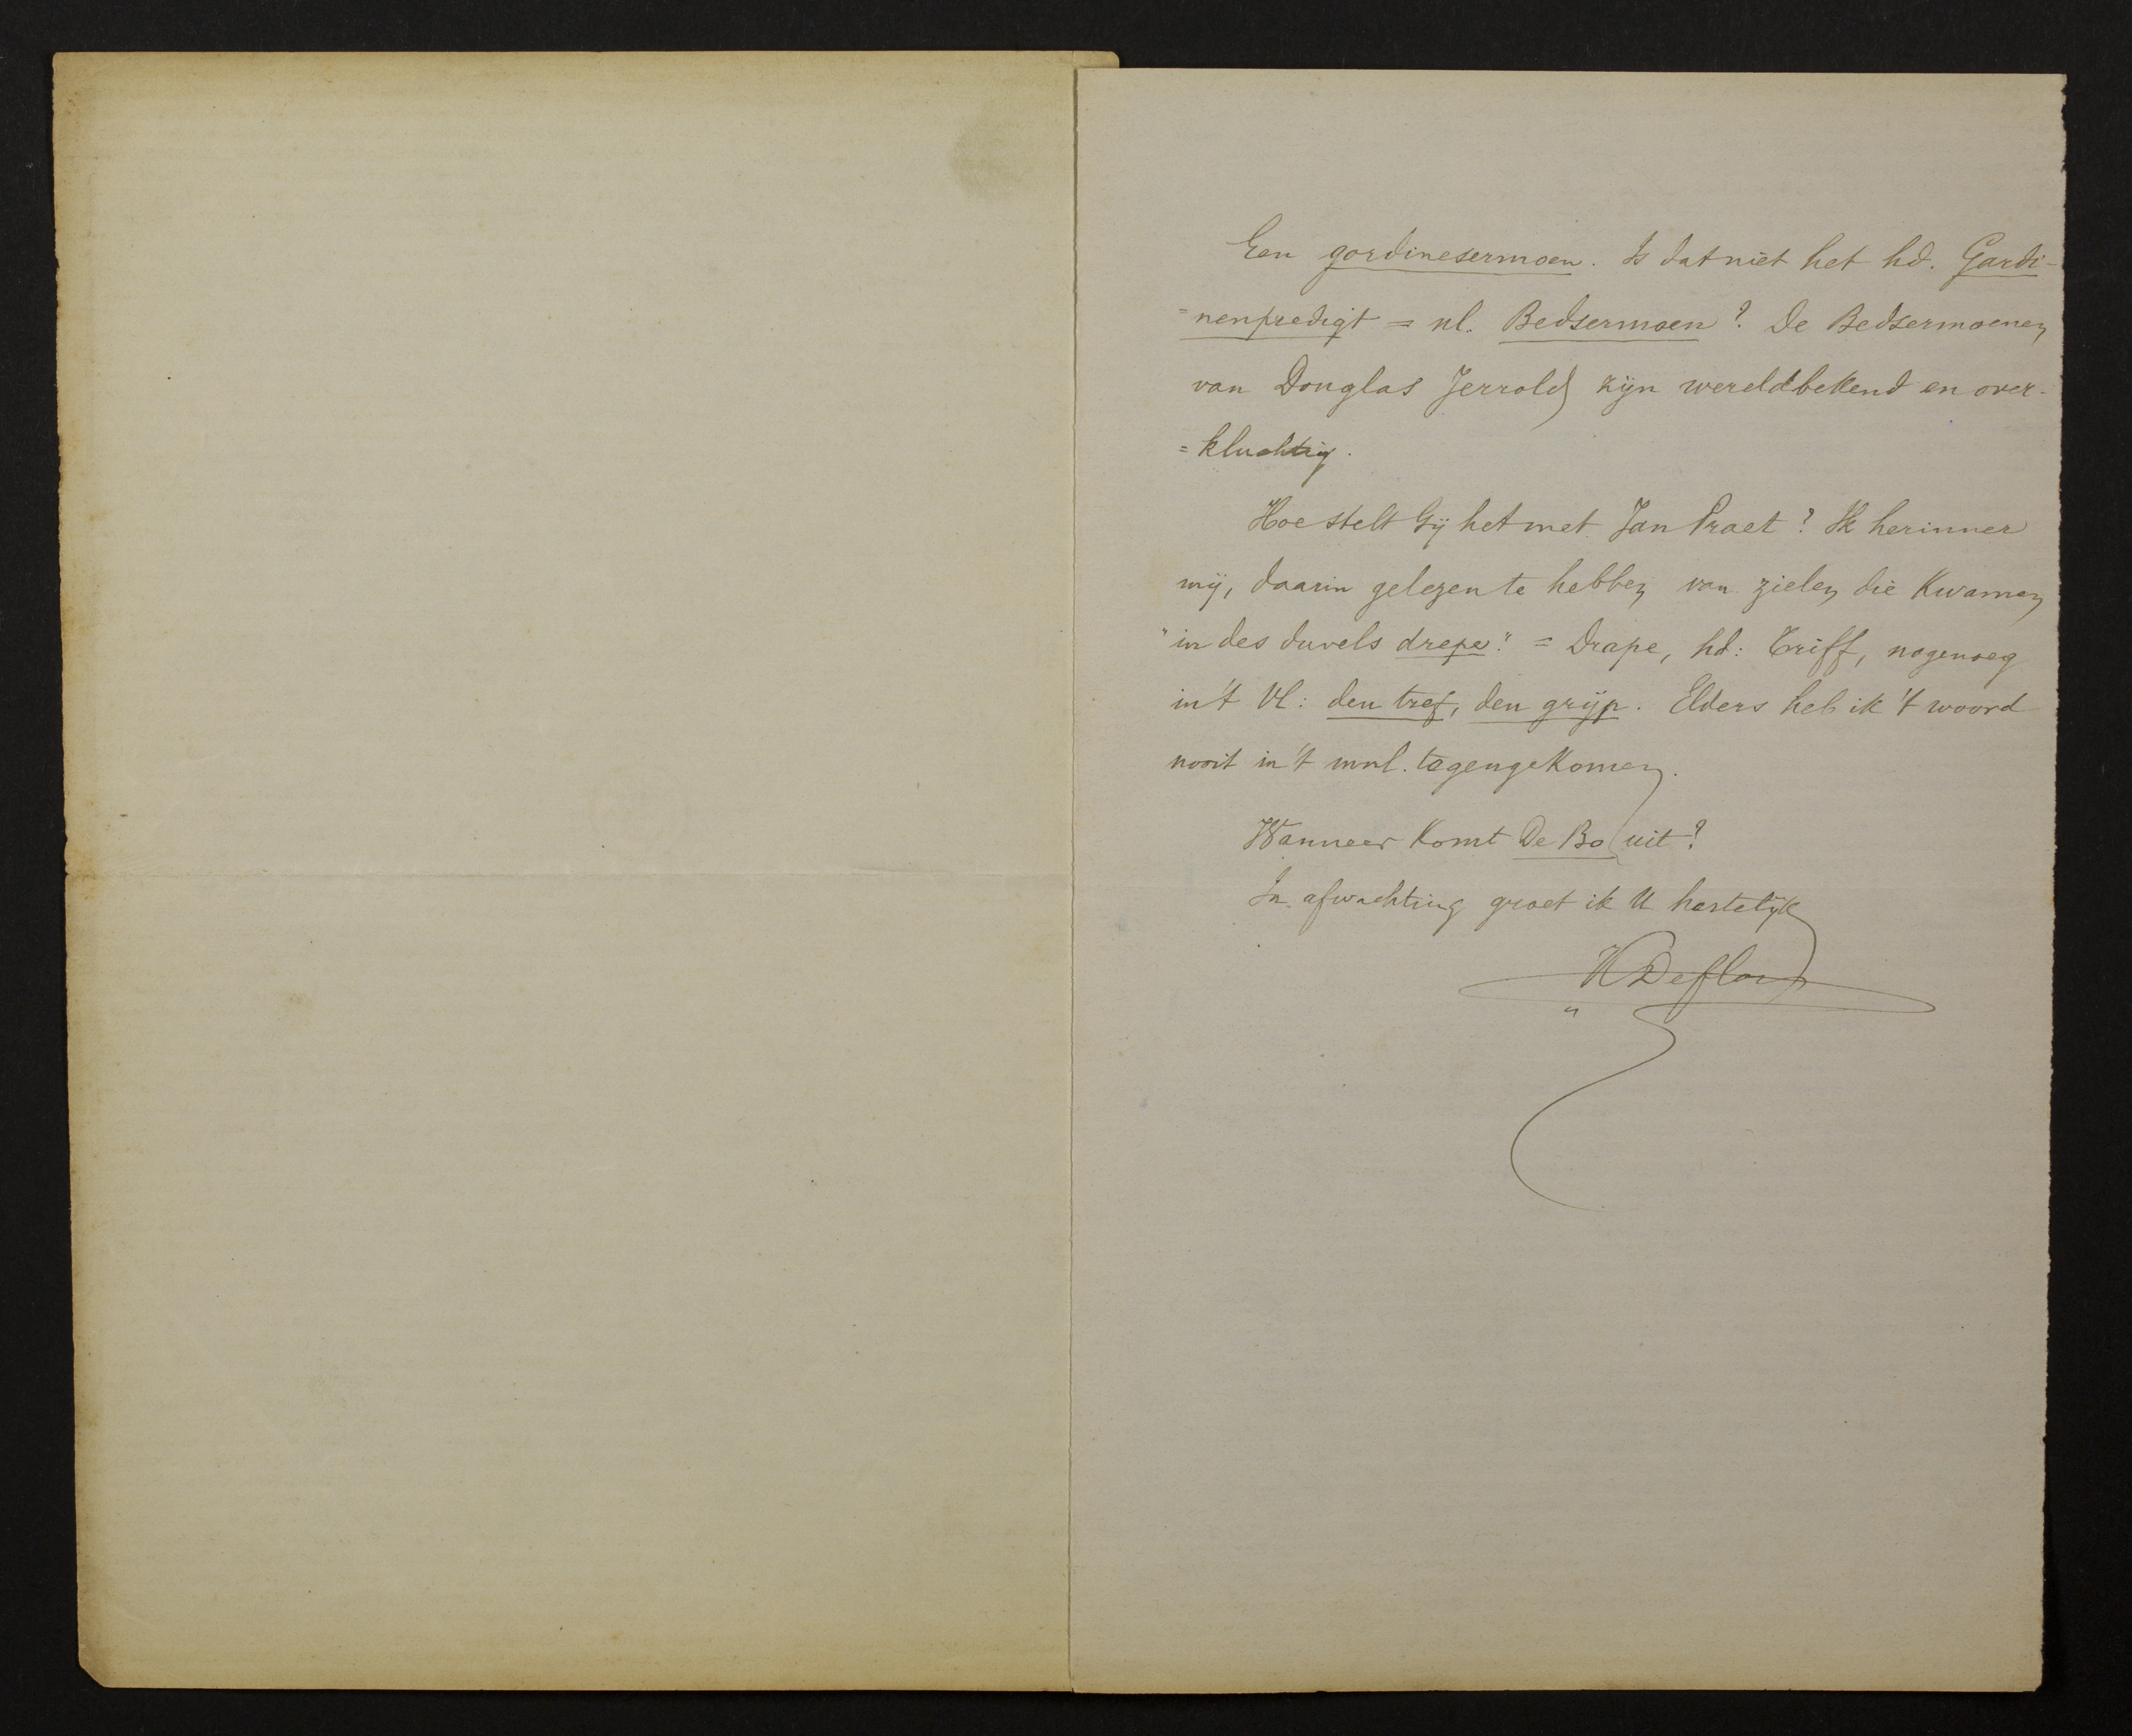 Een gordinesermoen. Is dat niet het hd. Gardi-
=nenpredigt = nl. Bedsermoen? De Bedsermoenen
van Douglas Jerrold zijn wereldbekend en over-
=kluchtig.
Hoe stelt Gij het met Jan Praet? Ik herinner
mij, daarin gelezen te hebben van zielen die kwamen
"in des duvels drepe" = Drape, hd: Triff, nogenoeg
in 't Vl: den tref, den grijp. Elders heb ik 't woord
nooit in 't mnl. tegengekomen.
Wanneer komt De Bo uit?
In afwachting groet ik U hertelijk